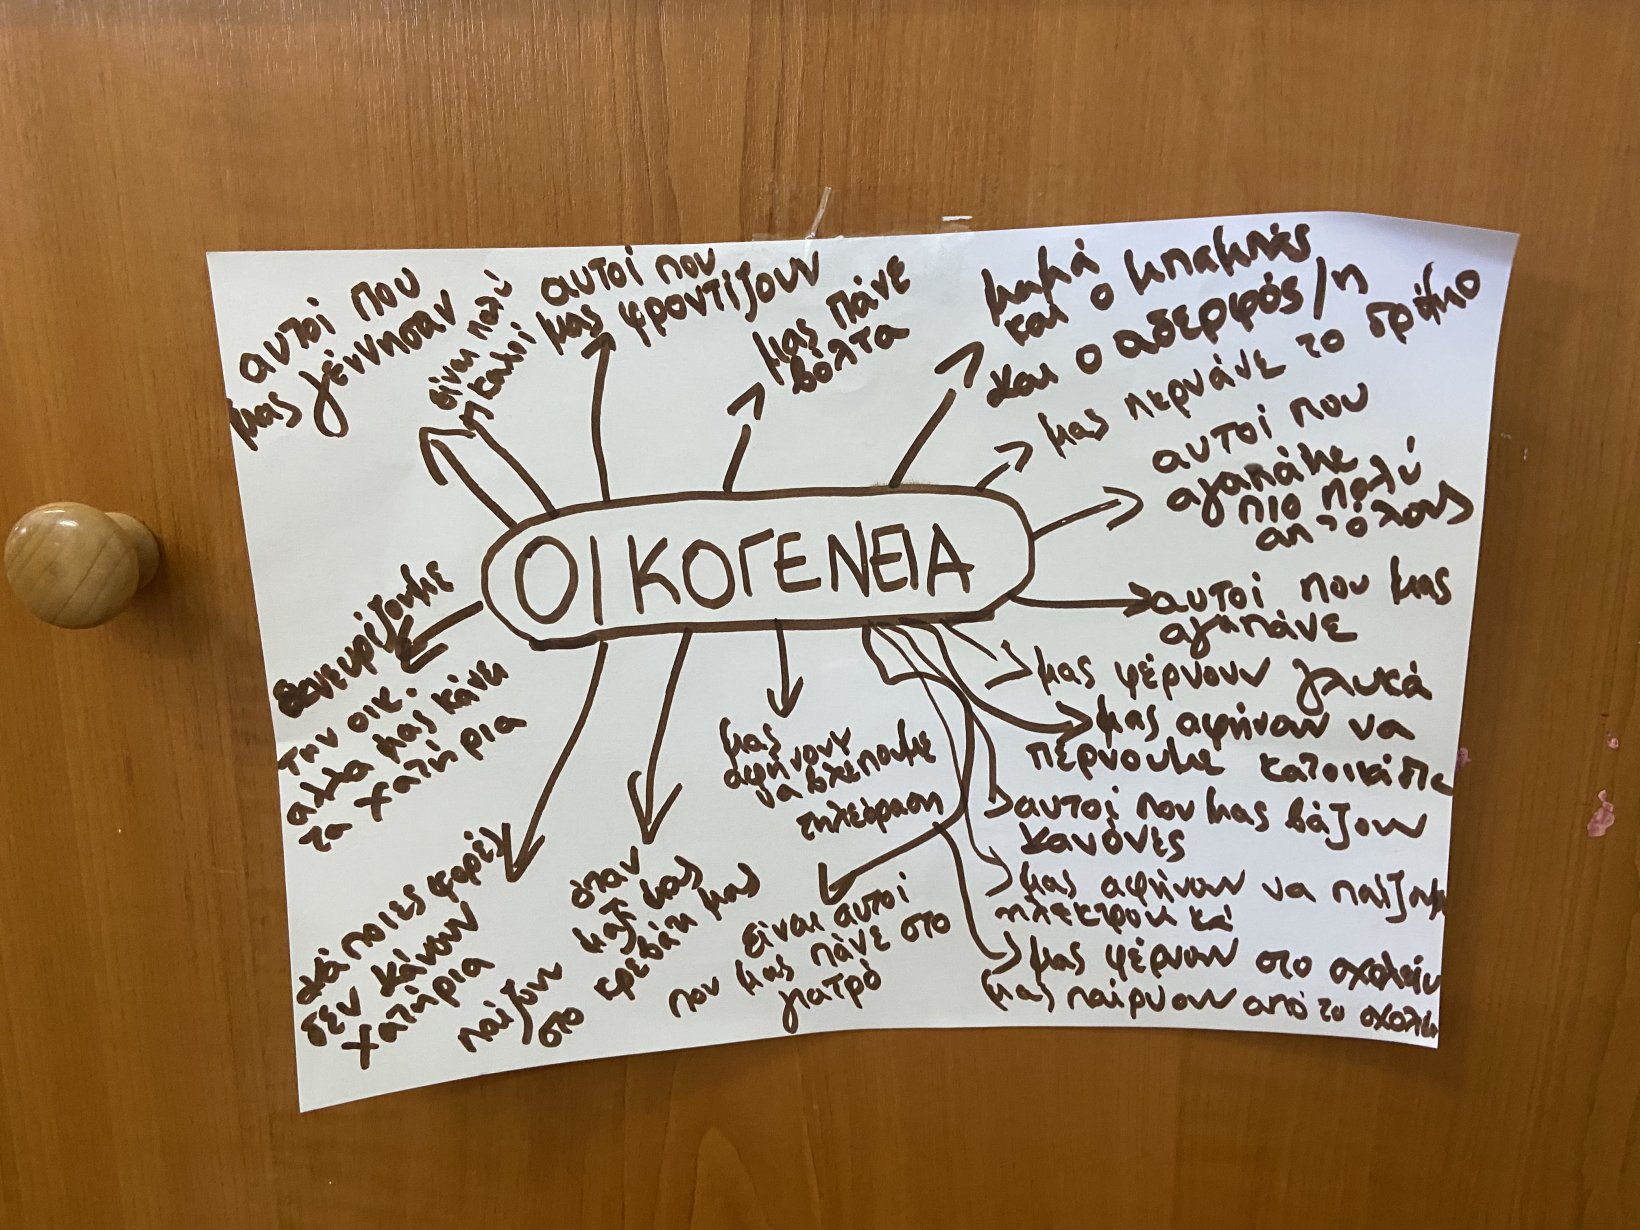 αυτοί που
μας γέννησαν
είναι πολύ
καλοί
αυτοί που
μας φροντίζουν
μας πάνε
βόλτα
μαμά
και ο μπαμπάς
και ο αδερφός/η
μας περνάνε το δρόμο
αυτοί που
αγαπάμε
πιο πολύ
απ'όλους
ΟΙΚΟΓΕΝΕΙΑ
αυτοί που μας
αγαπάνε
μας φέρνουν γλυκά
μας αφήνουν να
πέρνουμε κατοικίδια
αυτοί που μας βάζουν
κανόνες
μας αφήνουν να παίζουμε
ηλεκτρονικά
μας φέρνουν στο σχολείο
μας παίρνουν από το σχολείο
είναι αυτοί
που μας πάνε στο
γιατρό
μας
αφήνουν
να βλέπουμε
τηλεόραση
όταν
παίζουν μαζί μας
στο κρεβάτι μας
κάποιες φορές
δεν κάνουν
χατήρια
την οικ.
αλλά μας κάνει
τα χατήρια